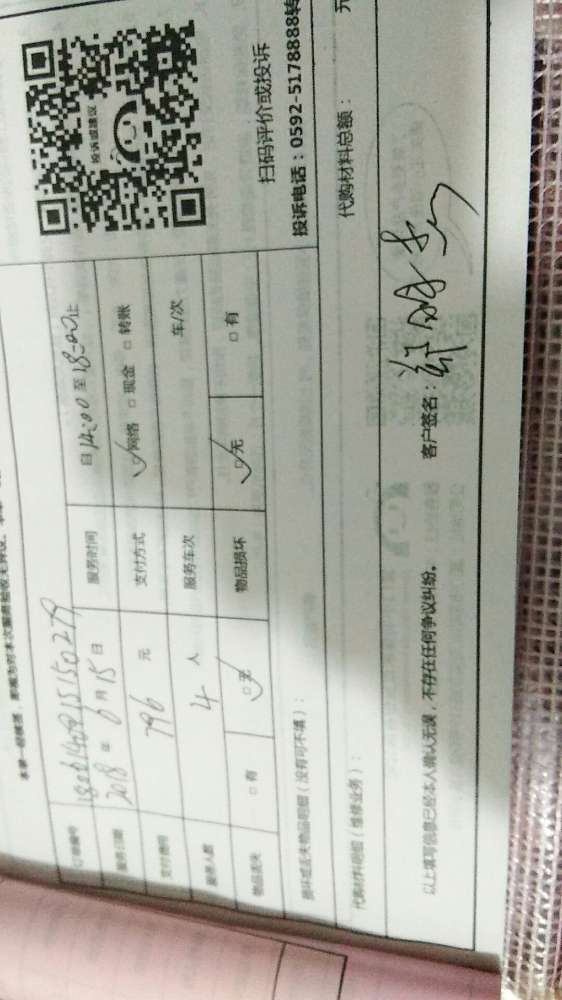 本单一经签署，即视为对本次服务验收无异议。
订单编号
服务日期 2018 年 6 月 15 日 服务时间 日 14:00 至 18:00 止
支付费用 796 元 支付方式 ☑网络 □现金 □转账
服务人数 4 人 服务车次 车/次
物品丢失 □有 ☑无 物品损坏 ☑无 □有
投诉或建议
扫码评价或投诉
投诉电话：0592-5178888转
损坏或丢失物品明细（没有可不填）：
代购材料明细（维修业务）： 代购材料总额： 元
以上填写信息已经本人确认无误，不存在任何争议纠纷。 客户签名：